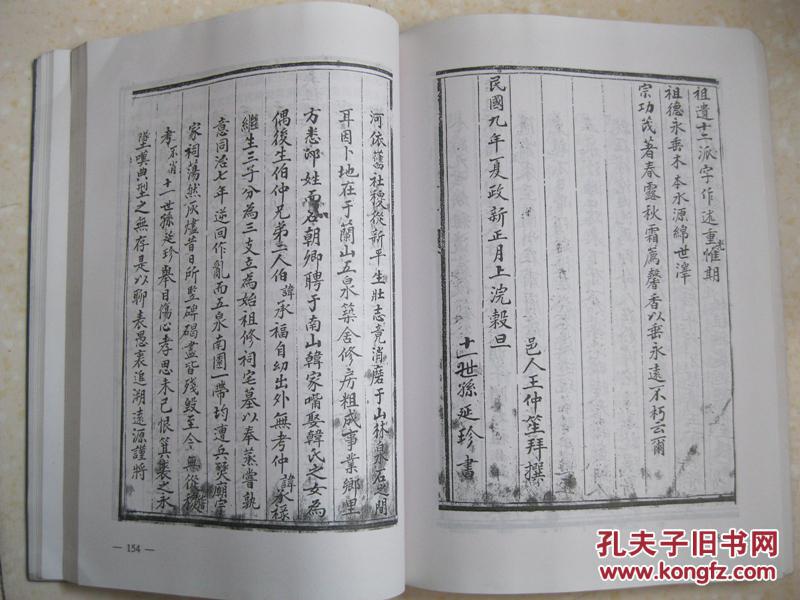 祖遺十二派字作述重惟期
光
祖德永垂木本水源綿世澤
宗功茂著春露秋霜薦馨香以垂永遠不朽云爾
民國九年夏政新正月上浣穀旦
邑人王仲笙拜撰
十一世孫延珍書
河依舊社稷從新平生壯志竟消磨于山林泉石之間
耳因卜地在于蘭山五泉築舍修房粗成事業鄉里
方悉邵姓而名朝卿聘于南山韓家嘴娶韓氏之女為
偶後生伯仲兄弟二人伯諱承福自幼出外無考仲諱承祿
繼生三子分為三支立為始祖修祠宅墓以奉蒸嘗孰
意同治七年逆回作亂而五泉南園一帶均遭兵燹廟宇
家祠蕩然灰燼昔日所監碑碣盡皆殘毀至今無從稽
考不肖十一世孫延珍舉目傷心孝思未已恨箕裘之永
墜嘆典型之無存是以聊表愚衷追溯遠源謹將
— 154 —
孔夫子旧书网
www.kongfz.com